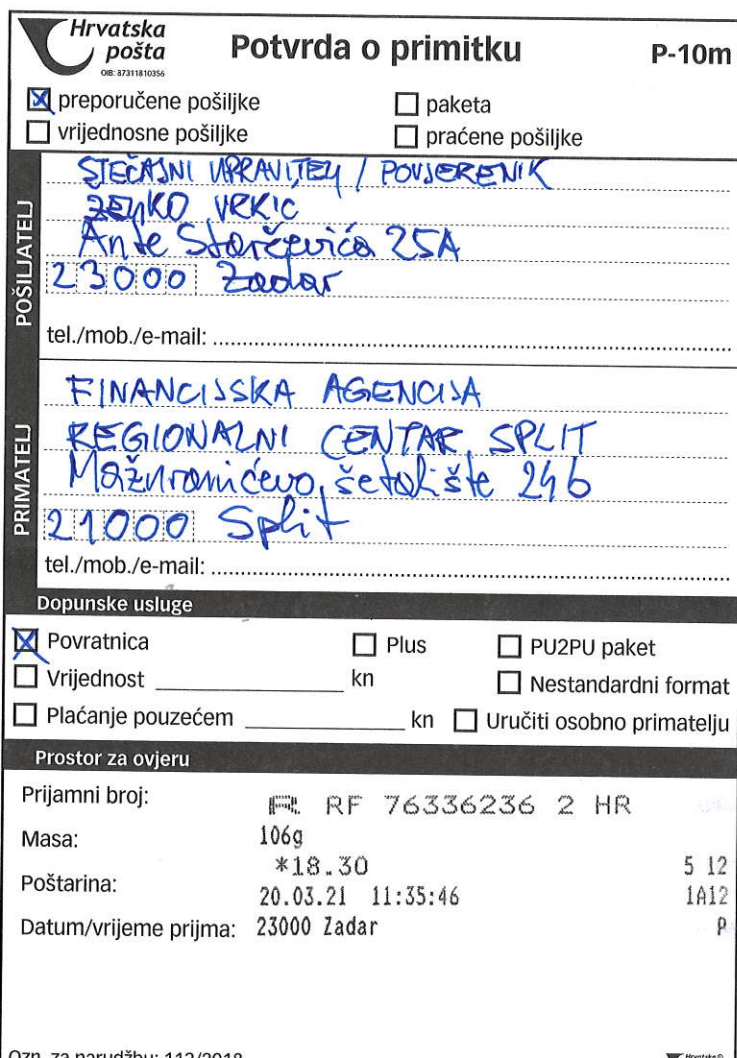 Hrvatska pošta
OIB: 87311810356
Potvrda o primitku
P-10m
preporučene pošiljke
paketa
vrijednosne pošiljke
praćene pošiljke
POŠILJATELJ
STEČAJNI UPRAVITELJ / POVJERENIK
ŽELJKO VRKIĆ
Ante Starčevića 25A
23000 Zadar
tel./mob./e-mail:
PRIMATELJ
FINANCIJSKA AGENCIJA
REGIONALNI CENTAR SPLIT
Mažuranićevo šetalište 24b
21000 Split
tel./mob./e-mail:
Dopunske usluge
Povratnica
Plus
PU2PU paket
Vrijednost kn
Nestandardni format
Plaćanje pouzećem kn
Uručiti osobno primatelju
Prostor za ovjeru
Prijamni broj: R RF 76336236 2 HR
Masa: 106g
*18.30 5 12
Poštarina: 20.03.21 11:35:46 1A12
Datum/vrijeme prijma: 23000 Zadar P
Ozn. za narudžbu: 112/2018